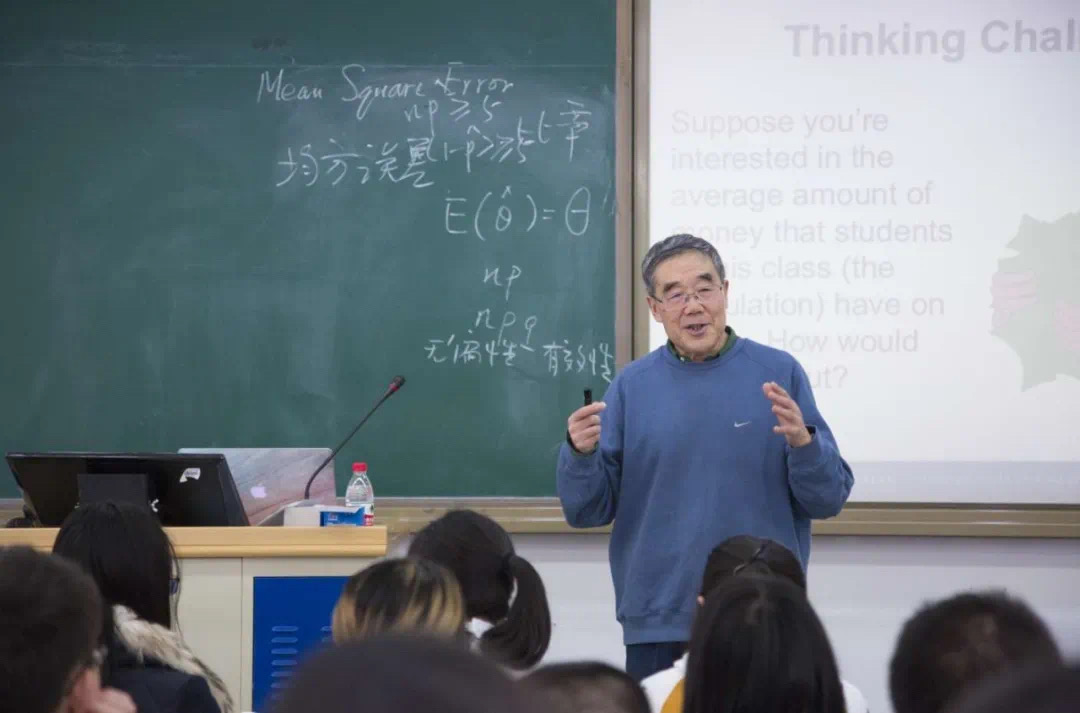 Mean Square Error
np ≥ 5
均方误差
E(θ̂) = θ
np
npq
无偏性 有效性
Thinking Chal
Suppose you're
interested in the
average amount of
money that students
is class (the
ulation) have on
How would
ut?